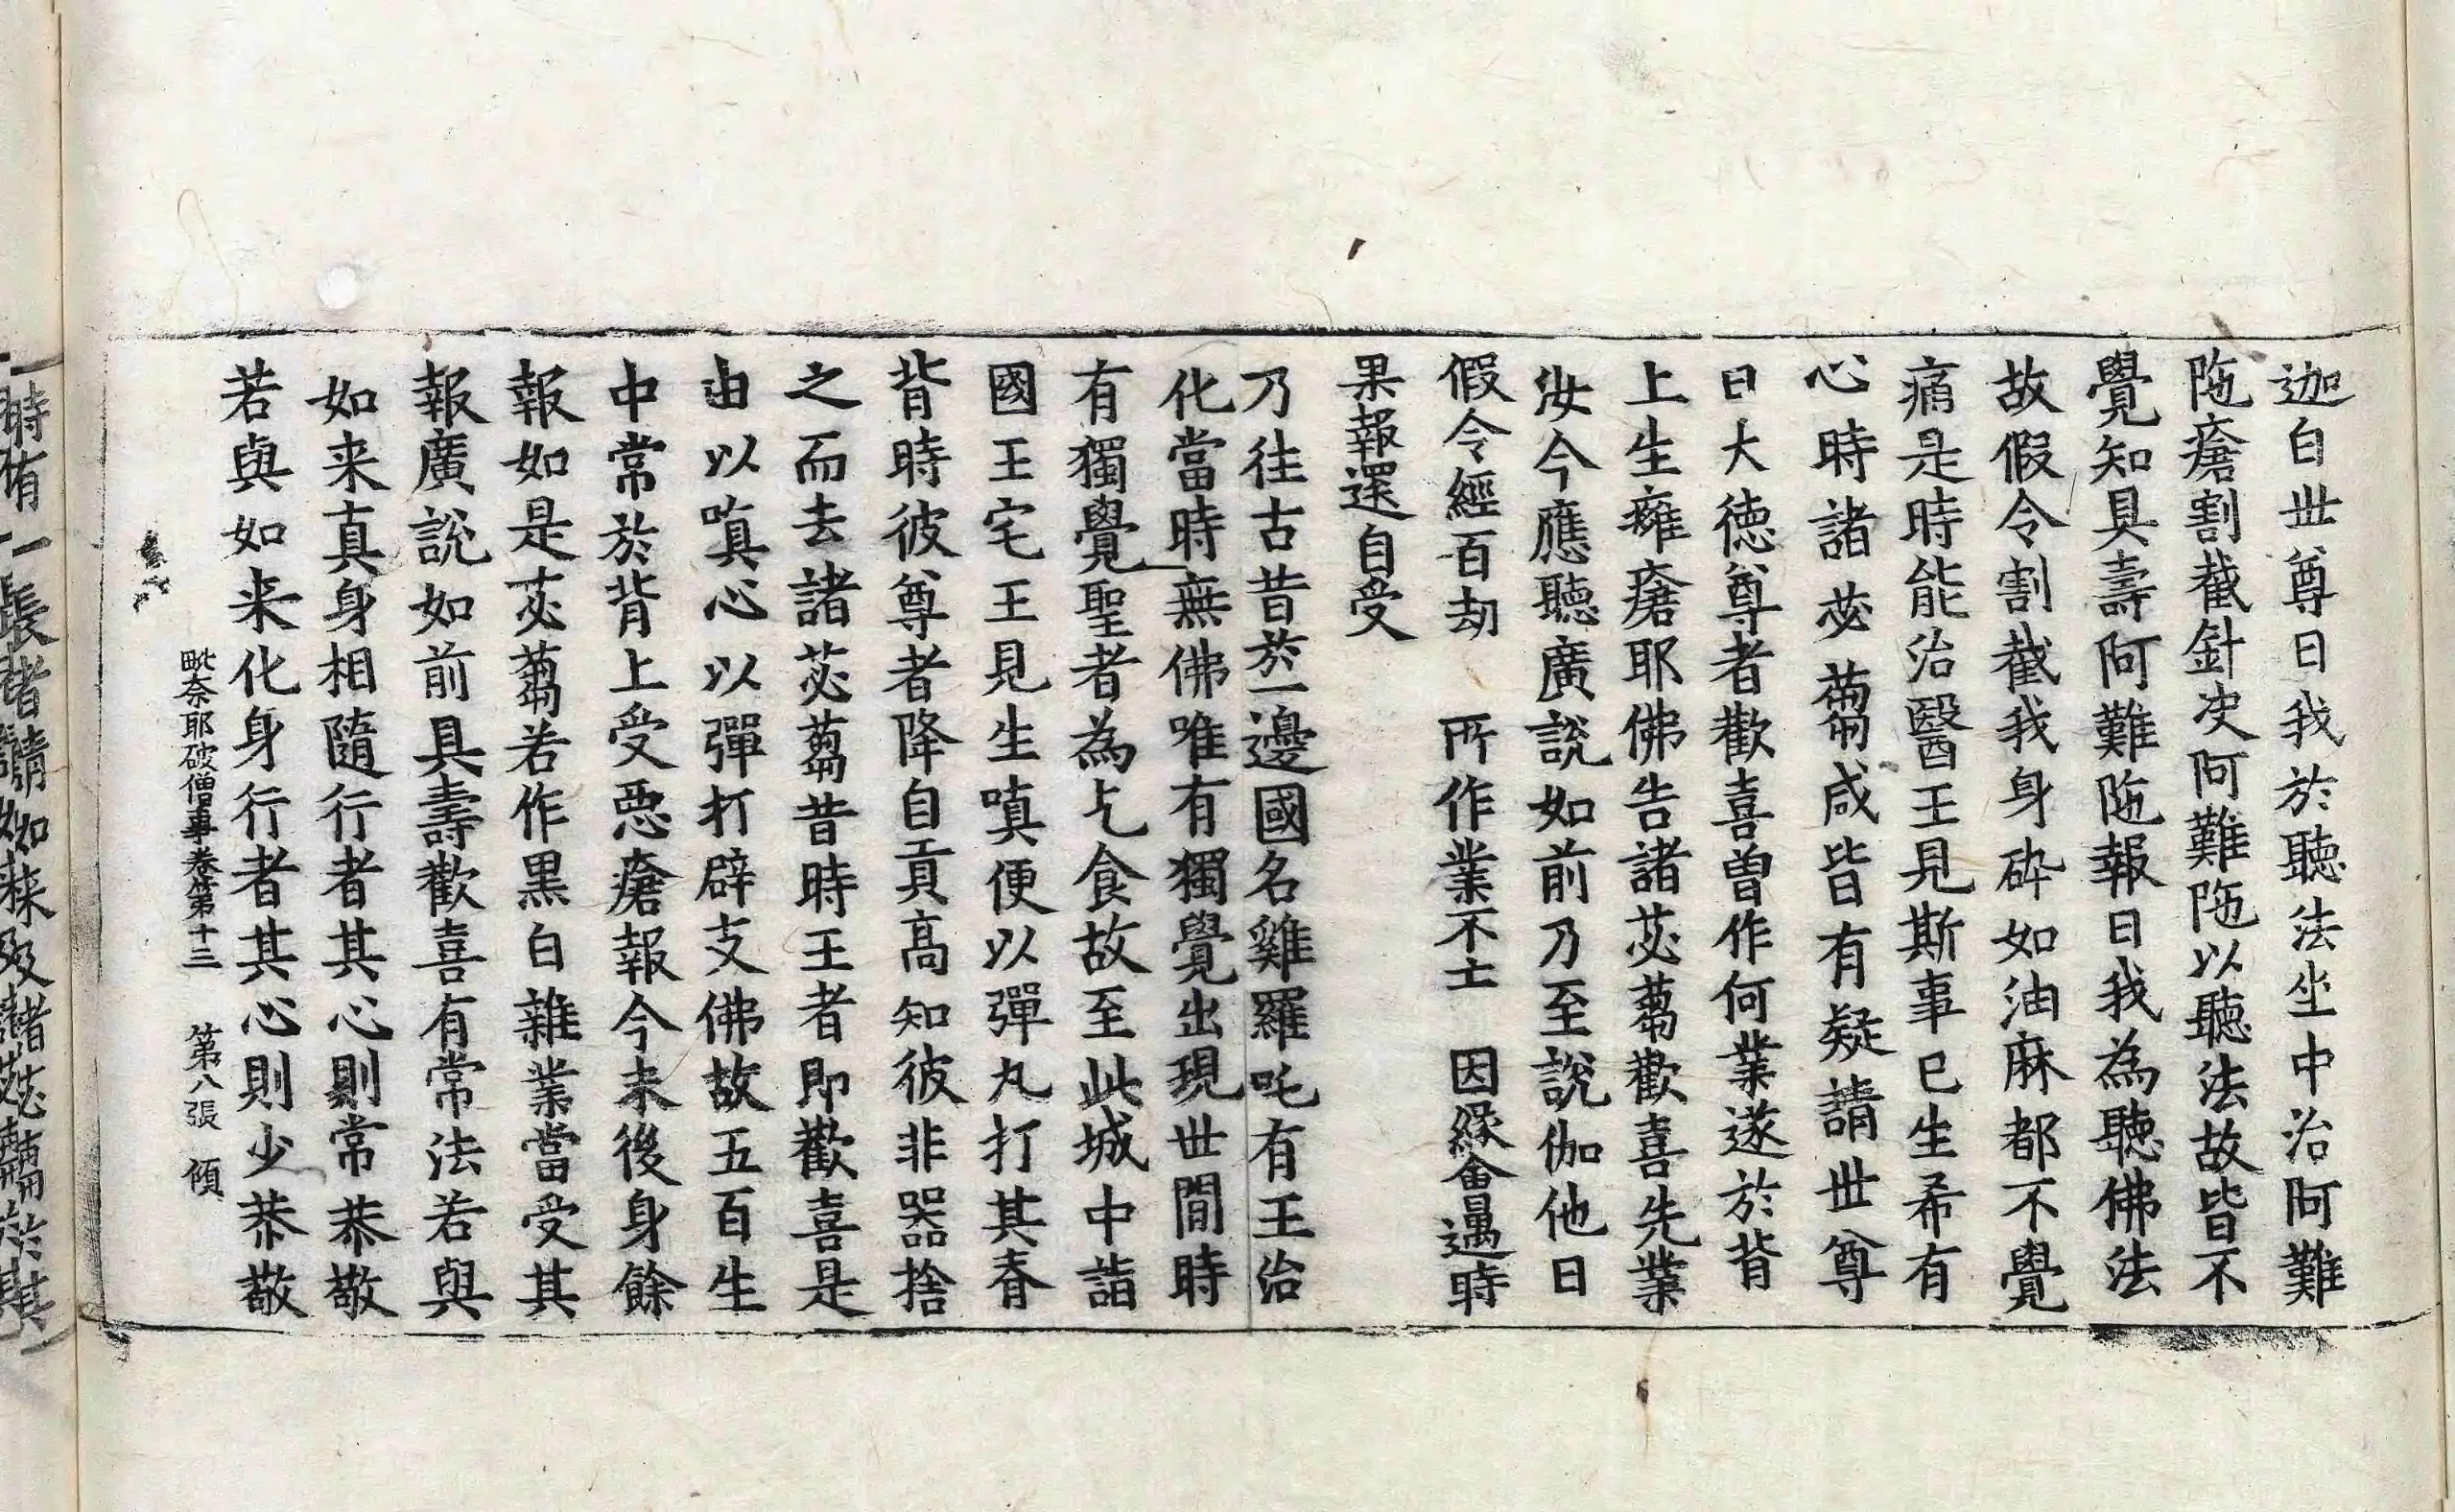 迦白世尊曰我於聽法坐中治阿難
陁瘡割截針决阿難陁以聽法故皆不
覺知具壽阿難陁報曰我為聽佛法
故假令割截我身碎如油麻都不覺
痛是時能治醫王見斯事已生希有
心時諸苾蒭咸皆有疑請世尊
曰大德尊者歡喜曾作何業遂於背
上生癰瘡耶佛告諸苾蒭歡喜先業
汝今應聽廣說如前乃至說伽他曰
假令經百劫　所作業不亡　因緣會遇時
果報還自受
乃往古昔於一邊國名雞羅吒有王治
化當時無佛唯有獨覺出現世間時
有獨覺聖者為乞食故至此城中詣
國王宅王見生嗔便以彈丸打其脊
背時彼尊者降自貢高知彼非器捨
之而去諸苾蒭昔時王者即歡喜是
由以嗔心以彈打辟支佛故五百生
中常於背上受惡瘡報今末後身餘
報如是苾蒭若作黑白雜業當受其
報廣說如前具壽歡喜有常法若與
如来真身相隨行者其心則常恭敬
若與如来化身行者其心則少恭敬
毗奈耶破僧事卷第十三　第八張　傾
時有一長者請如来及諸苾蒭於其